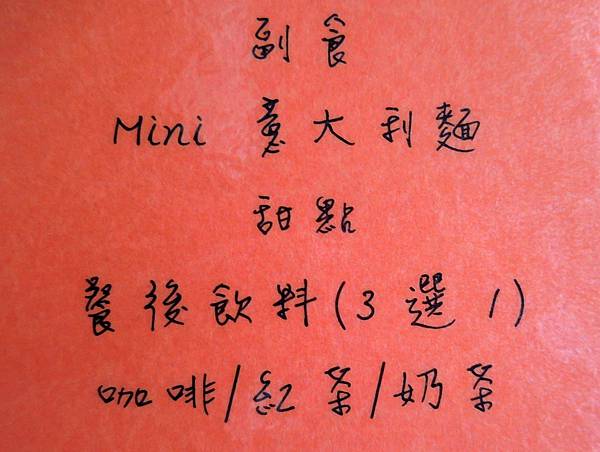 副食
Mini 意大利麵
甜點
餐後飲料(3選1)
咖啡/紅茶/奶茶